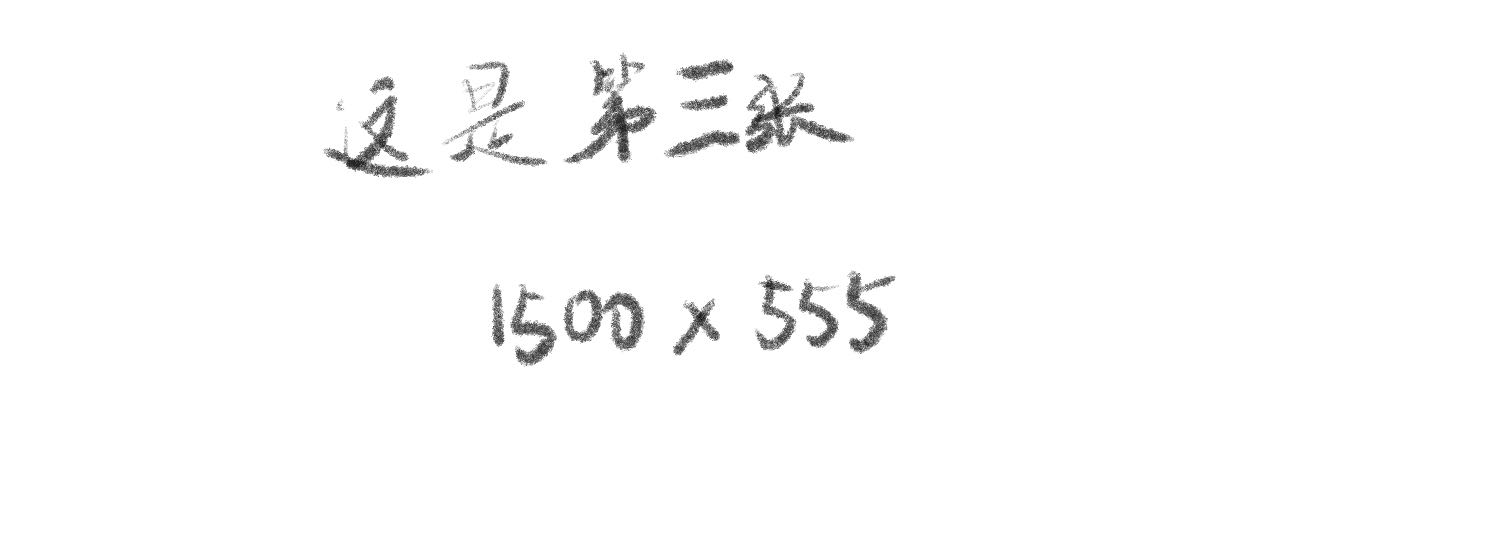 这是第三张
1500 x 555